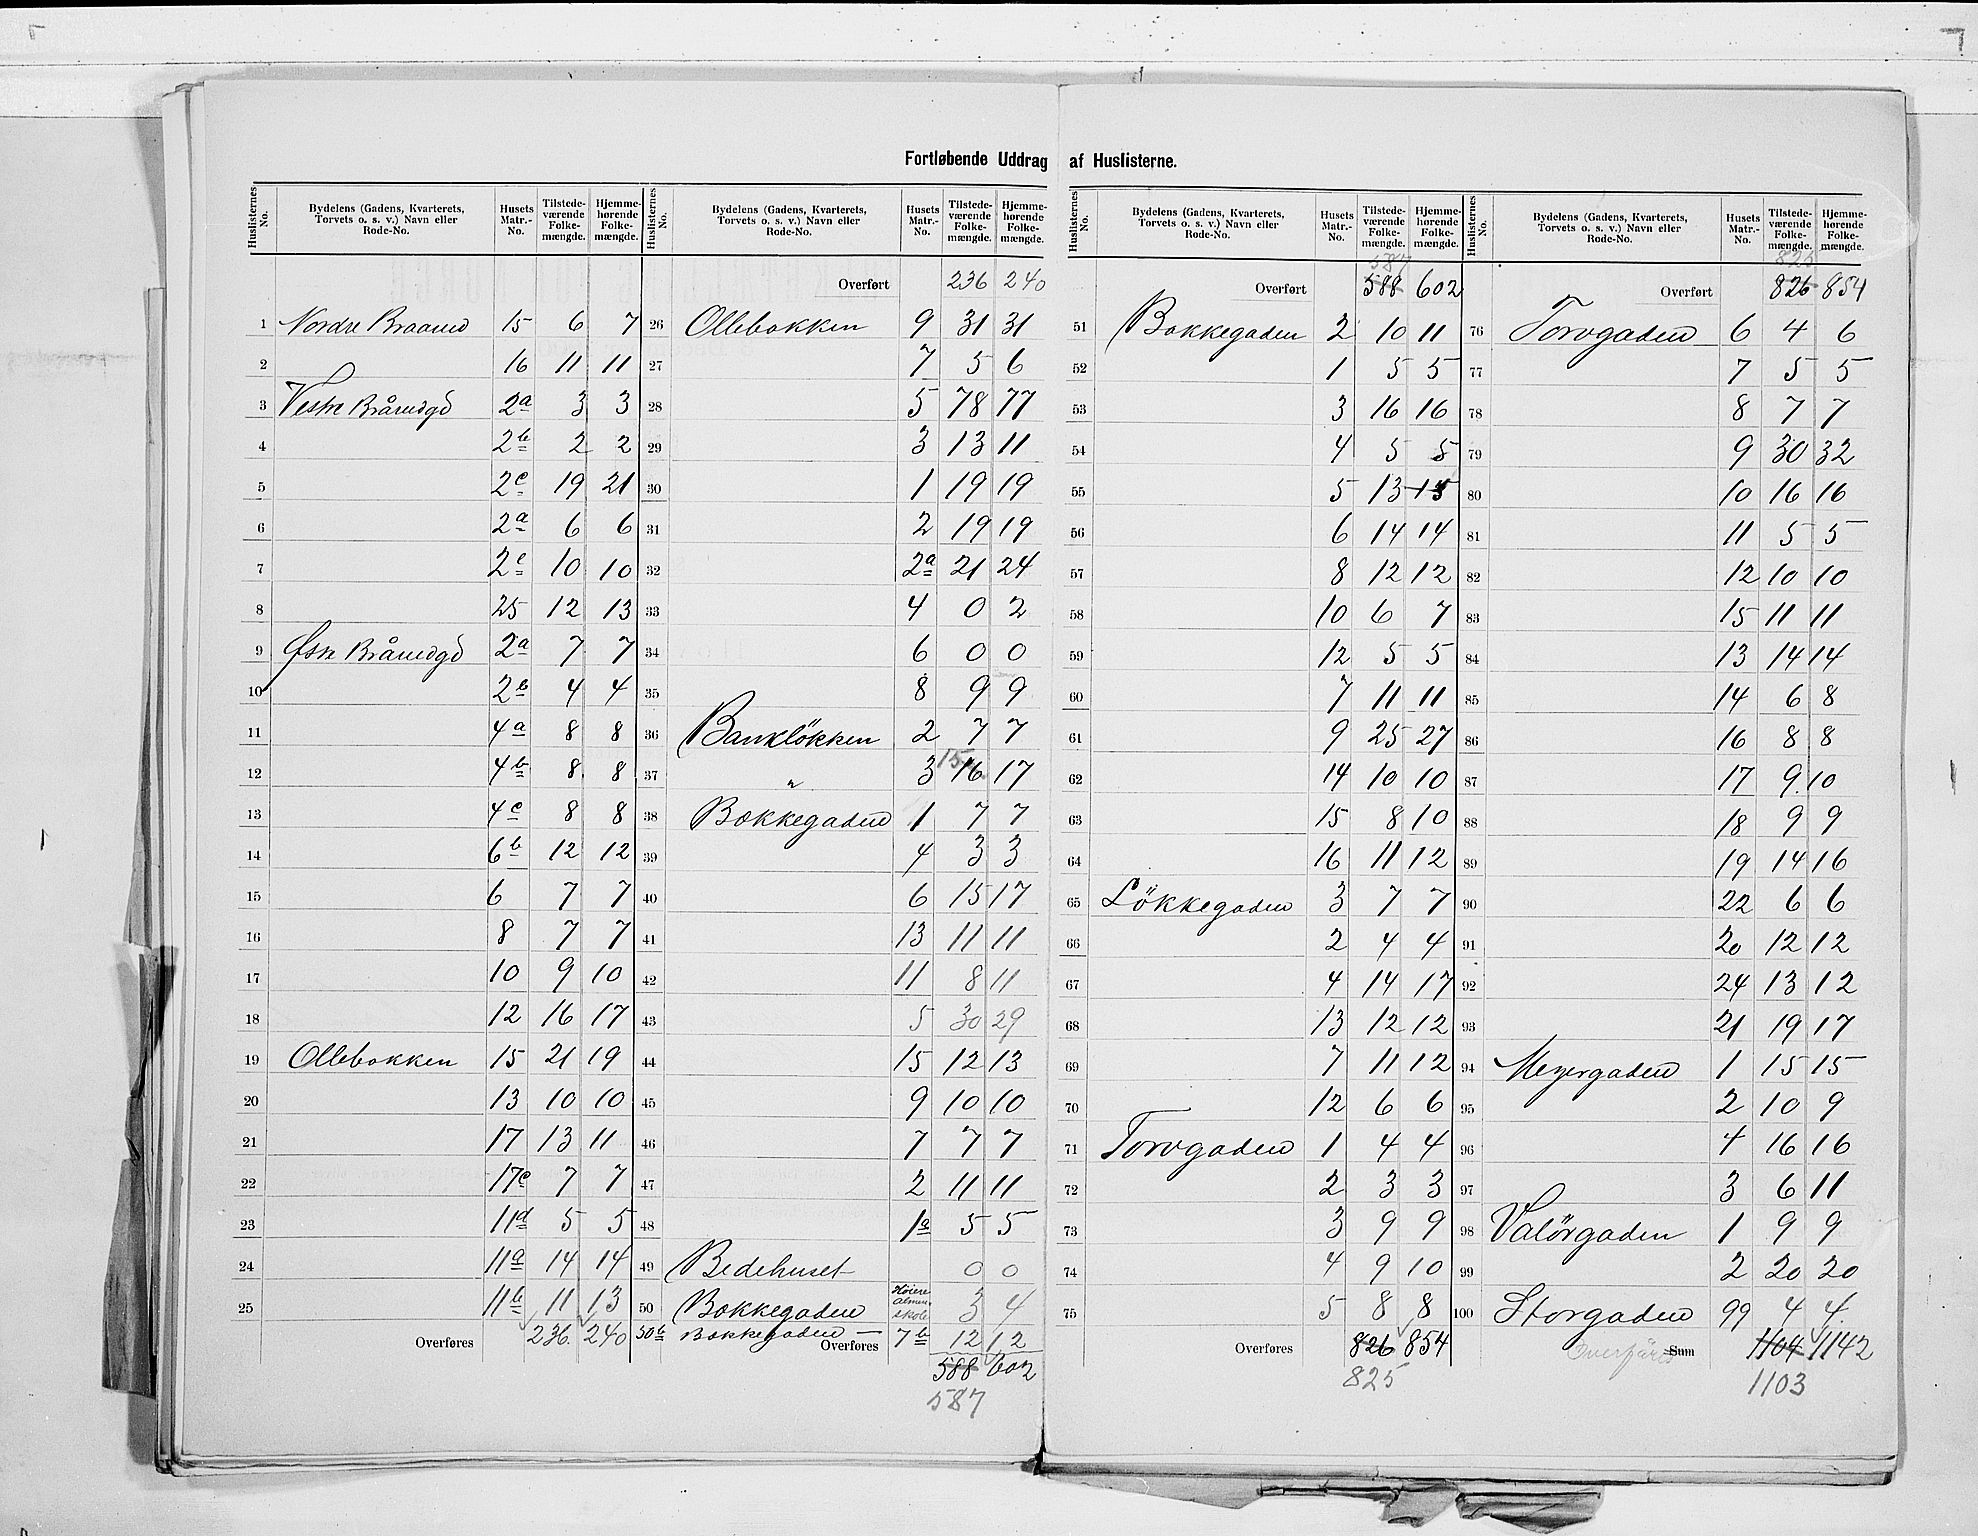 Fortløbende Uddrag af Huslisterne.
Huslisternes No. | Bydelens (Gadens, Kvarterets, Torvets o. s. v.) Navn eller Rode-No. | Husets Matr.-No. | Tilstedeværende Folkemængde. | Hjemmehørende Folkemængde.
1 Nordre Braand 15 6 7
2 16 11 11
3 Vestre Brårudgd 2a 3 3
4 2b 2 2
5 2c 19 21
6 2a 6 6
7 2e 10 10
8 25 12 13
9 Østr Brårudgd 2a 7 7
10 2b 4 4
11 4a 8 8
12 4b 8 8
13 4c 8 8
14 6b 12 12
15 6 7 7
16 8 7 7
17 10 9 10
18 12 16 17
19 Ollebakken 15 21 19
20 13 10 10
21 17 13 11
22 17c 7 7
23 11d 5 5
24 11a 14 14
25 11b 11 13
Overføres 236. 240
Huslisternes No. | Bydelens (Gadens, Kvarterets, Torvets o. s. v.) Navn eller Rode-No. | Husets Matr.-No. | Tilstedeværende Folkemængde. | Hjemmehørende Folkemængde.
Overført 236 240
26 Ollebakken 9 31 31
27 7 5 6
28 5 78 77
29 3 13 11
30 1 19 19
31 2 19 19
32 2a 21 24
33 4 0 2
34 6 0 0
35 8 9 9
36 Bankløkken 2 7 7
37 " 3 15 16 17
38 Bakkegaden 1 7 7
39 4 3 3
40 6 15 17
41 13 11 11
42 11 8 11
43 5 30 29
44 15 12 13
45 9 10 10
46 7 7 7
47 2 11 11
48 1a 5 5
49 Bedehuset 0 0
50 Bakkegaden Høiere Almenskole 3 4
50b Bakkegaden — Overføres 7b 12 12
588 602
587
Huslisternes No. | Bydelens (Gadens, Kvarterets, Torvets o. s. v.) Navn eller Rode-No. | Husets Matr.-No. | Tilstedeværende Folkemængde. | Hjemmehørende Folkemængde.
587
Overført 588 602
51 Bakkegaden 2 10 11
52 1 5 5
53 3 16 16
54 4 5 5
55 5 13 15
56 6 14 14
57 8 12 12
58 10 6 7
59 12 5 5
60 7 11 11
61 9 25 27
62 14 10 10
63 15 8 10
64 16 11 12
65 Løkkegaden 3 7 7
66 2 4 4
67 4 14 17
68 13 12 12
69 7 11 12
70 12 6 6
71 Torvgaden 1 4 4
72 2 3 3
73 3 9 9
74 4 9 10
75 5 8 8
Overføres 826 854
825
Huslisternes No. | Bydelens (Gadens, Kvarterets, Torvets o. s. v.) Navn eller Rode-No. | Husets Matr.-No. | Tilstedeværende Folkemængde. | Hjemmehørende Folkemængde.
825
Overført 826 854
76 Torvgaden 6 4 6
77 7 5 5
78 8 7 7
79 9 30 32
80 10 16 16
81 11 5 5
82 12 10 10
83 15 11 11
84 13 14 14
85 14 6 8
86 16 8 8
87 17 9 10
88 18 9 9
89 19 14 16
90 22 6 6
91 20 12 12
92 24 13 12
93 21 19 17
94 Meyergaden 1 15 15
95 2 10 9
96 4 16 16
97 3 6 11
98 Valørgaden 1 9 9
99 2 20 20
100 Storgaden 99 4 4.
Overføres Sum 1104 1142
1103